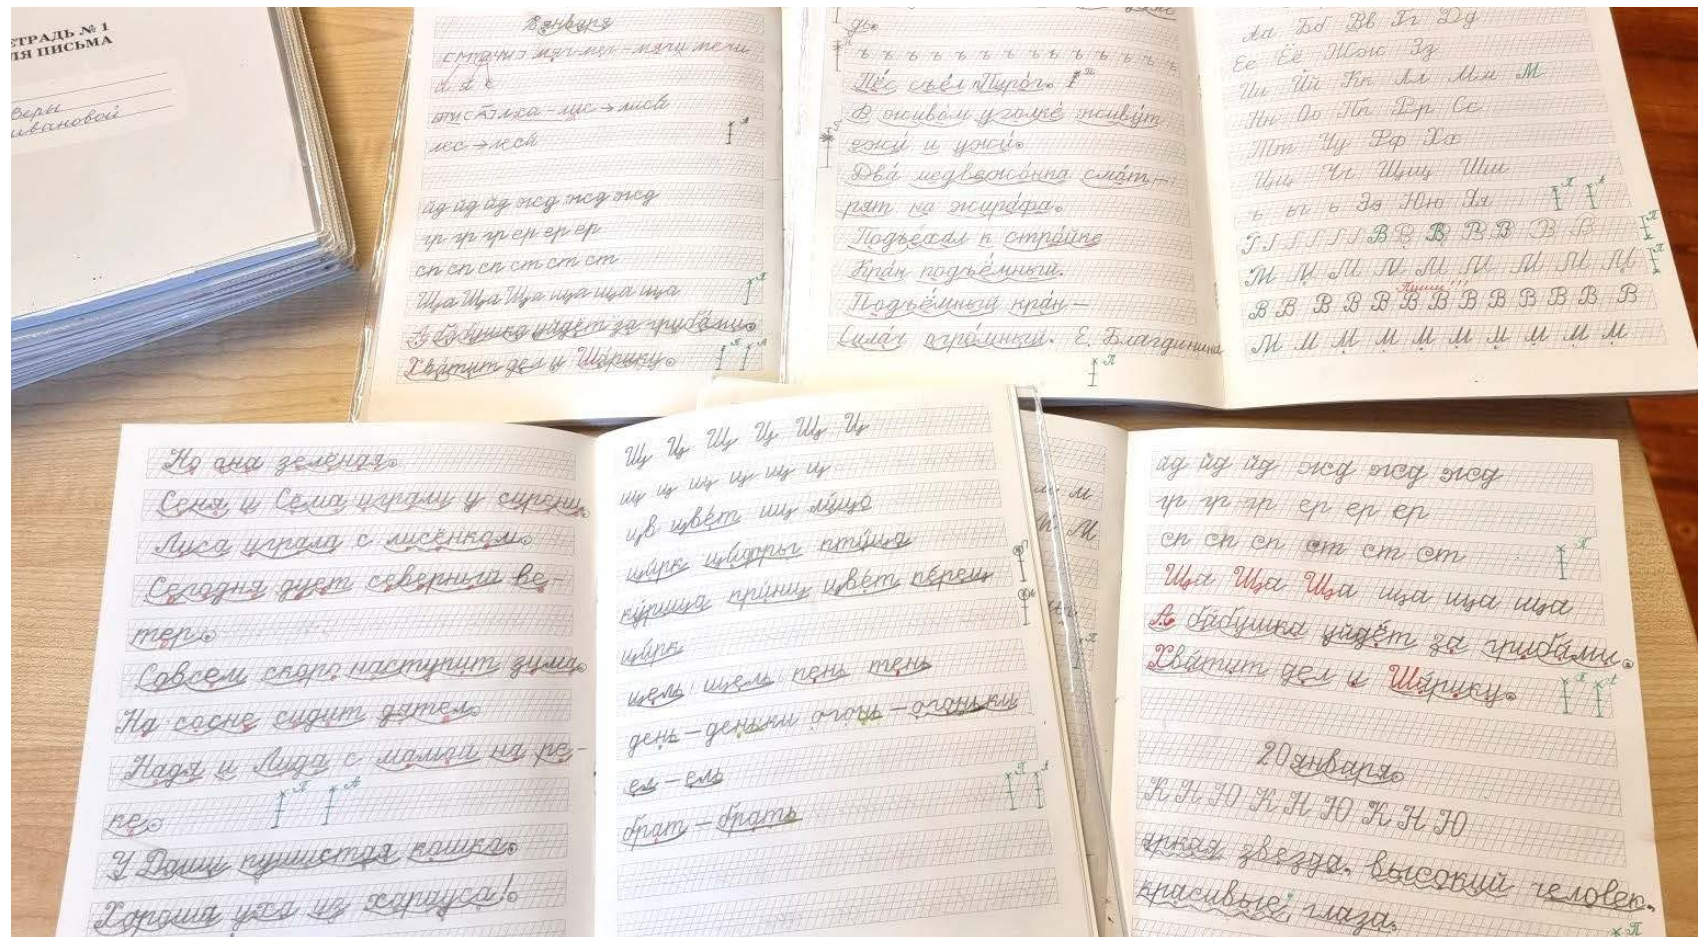 ТРАДЬ № 1
ЛЯ ПИСЬМА
Веры
Ивановой
января
мяч мел – мячи мели
лес → леса
йд йд йд жд жд жд
гр гр гр ер ер ер
сп сп сп ст ст ст
Ща Ща Ща ща ща ща
А бабушка уйдёт за грибами.
Хватит дел и Шарику.
ъ ъ ъ ъ ъ ъ ъ ъ ъ ъ ъ ъ ъ ъ
Пёс съел пирог.
В живом уголке живут
ежи и ужи.
Два медвежонка смот-
рят на жирафа.
Подъехал к стройке
Кран подъёмный.
Подъёмный кран –
Силач огромный. Е. Благинина
Аа Бб Вв Гг Дд
Ее Ёё Жж Зз
Ии Йй Кк Лл Мм М
Нн Оо Пп Рр Сс
Тт Уу Фф Хх
Цц Чч Щщ Шш
ъ ы ь Ээ Юю Яя
Г Г Г Г Г Г В В В В В В В
М М М М М М М М М
Пиши!!!
В В В В В В В В В В В В В
М М М М М М М М М М
Но она зелёная.
Сеня и Сёма играли у сирени.
Лиса играла с лисёнком.
Сегодня дует северный ве-
тер.
Совсем скоро наступит зима.
На сосне сидит дятел.
Надя и Лида с мамой на ре-
ке.
У Даши пушистая кошка.
Хороша уха из харауса!
Щ Ц Щ Ц Щ Ц
щ ц щ ц щ ц
цв цвет иц лицо
цирк цифры птица
курица принц цвет перец
цирк
цель щель пень тень
день – деньки огонь – огоньки
ел – ель
брат – брать
йд йд йд жд жд жд
гр гр гр ер ер ер
сп сп сп ст ст ст
Ща Ща Ща ща ща ща
А бабушка уйдёт за грибами.
Хватит дел и Шарику.
20 января.
К Н Ю К Н Ю К Н Ю
яркая звезда, высокий человек,
красивые глаза.